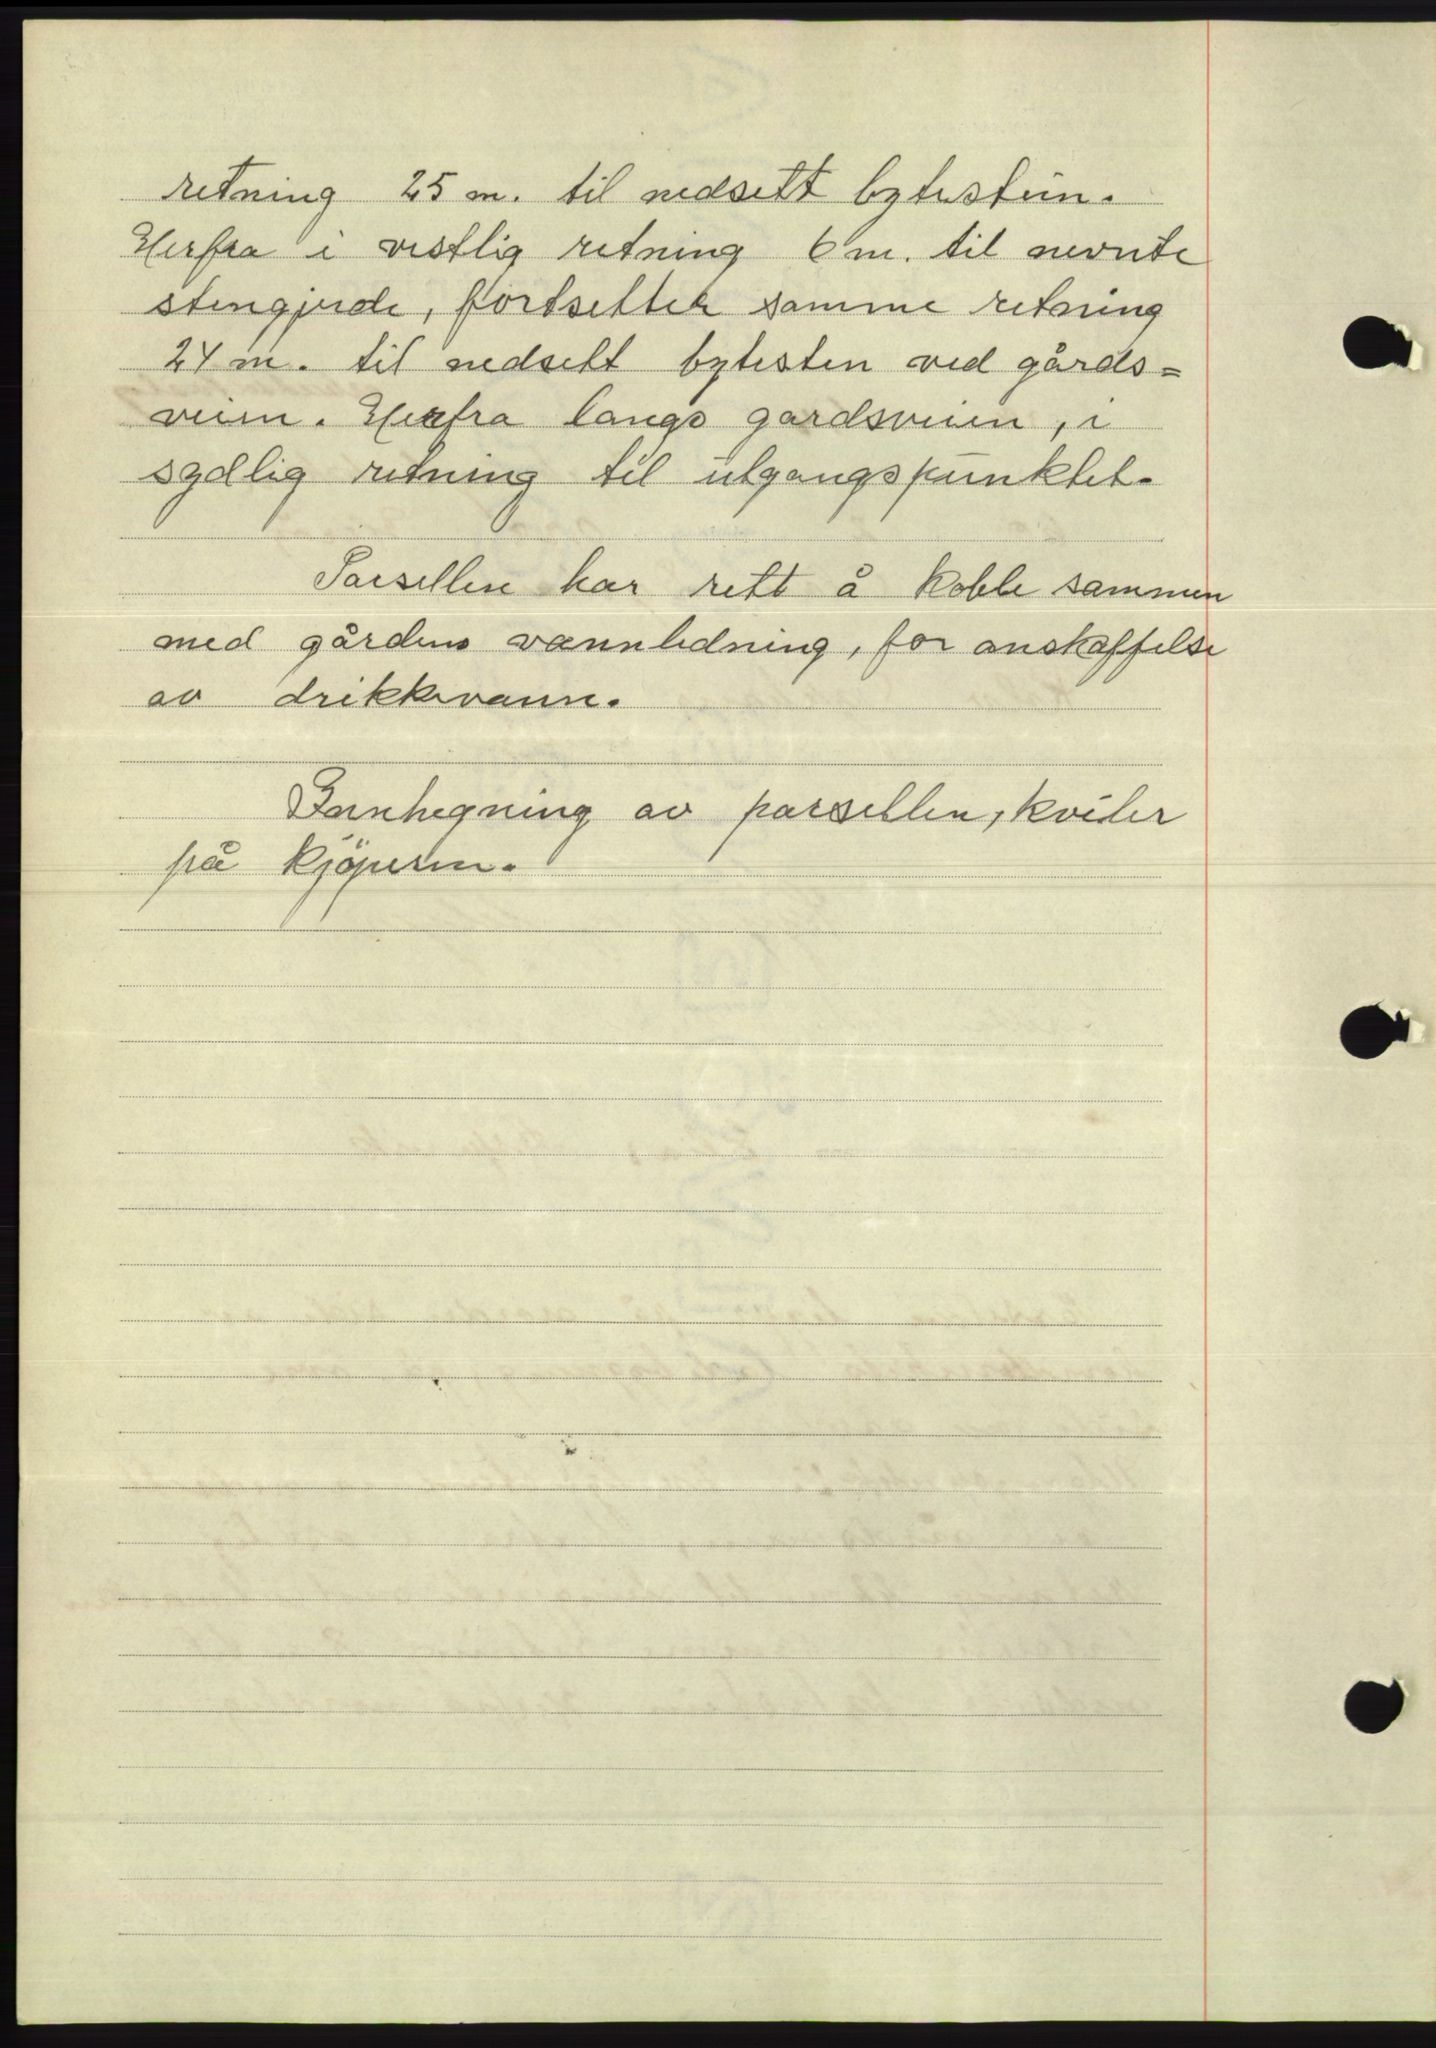 retning 25 m. til nedsett bytestein.
Herfra i vestlig retning 6 m. til nevnte
stengjerde, fortsetter samme retning
24 m. til nedsett bytesten ved gårds=
veien. Herfra langs gardsveien, i
sydlig retning til utgangspunktet.
Parsellen har rett å koble sammen
med gårdens vannledning, for anskaffelse
av drikkevann.
Innhegning av parsellen, kviler
på kjöperen.